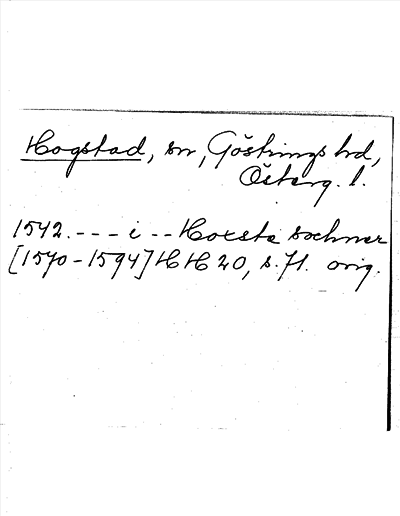 Hogstad, sn, Göstrings hd,
Österg. l.
1542. --- i -- Hoxsta sochner
[1570-1594] HH 20, s. 71. orig.